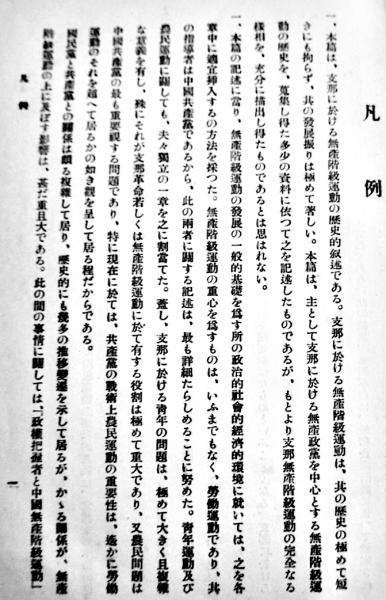 凡例
一、本篇は、支那に於ける無產階級運動の歷史的敘述である。支那に於ける無產階級運動は、其の歷史の極めて短
きにも拘らず、其の發展振りは極めて著しい。本篇は、主として支那に於ける無產政黨を中心とする無產階級運
動の歷史を、蒐集し得た多少の資料に依つて之を記述したものであるが、もとより支那無產階級運動の完全なる
樣相を、充分に描出し得たものであるとは思はれない。
一、本篇の記述に當り、無產階級運動の發展の一般的基礎を爲す所の政治的社會的經濟的環境に就いては、之を各
章中に適宜揷入するの方法を採つた。無產階級運動の重心を爲すものは、いふまでもなく、勞働運動であり、其
の指導者は中國共產黨であるから、此の兩者に關する記述は、最も詳細たらしめることに努めた。靑年運動及び
農民運動に關しても、夫々獨立の一章を之に割當てた。蓋し、支那に於ける靑年の問題は、極めて大きく且複雜
な意義を有し、殊にそれが支那革命若しくは無產階級運動に於て有する役割は極めて重大であり、又農民問題は
中國共產黨の最も重要視する問題であり、特に現在に於ては、共產黨の戰術上農民運動の重要性は、遙かに勞働
運動のそれを超へて居るかの如き觀を呈して居る程だからである。
國民黨と共產黨との關係は頗る複雜して居り、歷史的にも幾多の推移變遷を示して居るが、かゝる關係が、無產
階級運動の上に及ぼす影響は、甚だ重且大である。此の間の事情に關しては「政權把握者と中國無產階級運動」
凡例
一